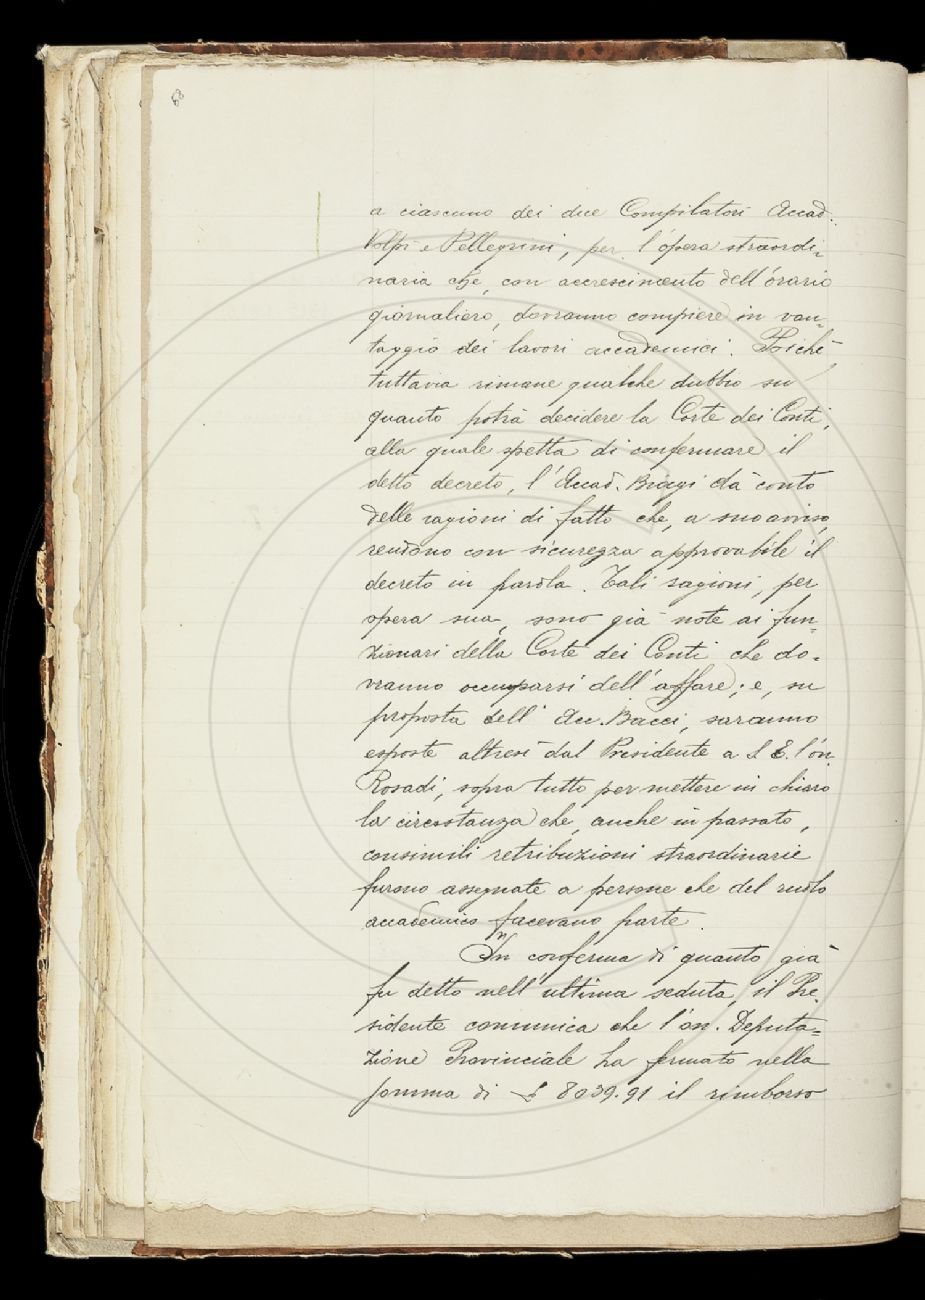 68
a ciascuno dei due Compilatori Accad.
Volpi e Pellegrini, per l'opera straordi-
naria che, con accrescimento dell'orario
giornaliero, dovranno compiere in van-
taggio dei lavori accademici. Poichè
tuttavia rimane qualche dubbio su
quanto potrà decidere la Corte dei Conti,
alla quale spetta di confermare il
detto decreto, l'Accad. Biagi dà conto
delle ragioni di fatto che, a suo avviso,
rendono con sicurezza approvabile il
decreto in parola. Tali ragioni, per
opera sua, sono già note ai fun-
zionari della Corte dei Conti che do-
vranno occuparsi dell'affare; e, su
proposta dell'Acc. Bacci, saranno
esposte altresì dal Presidente a S. E. l'on.
Rosadi, sopra tutto per mettere in chiaro
la circostanza che, anche in passato,
consimili retribuzioni straordinarie
furono assegnate a persone che del ruolo
accademico facevano parte.
In conferma di quanto già
fu detto nell'ultima seduta, il Pre-
sidente comunica che l'on. Deputa-
zione Provinciale ha fermato nella
somma di £ 8039.91 il rimborso